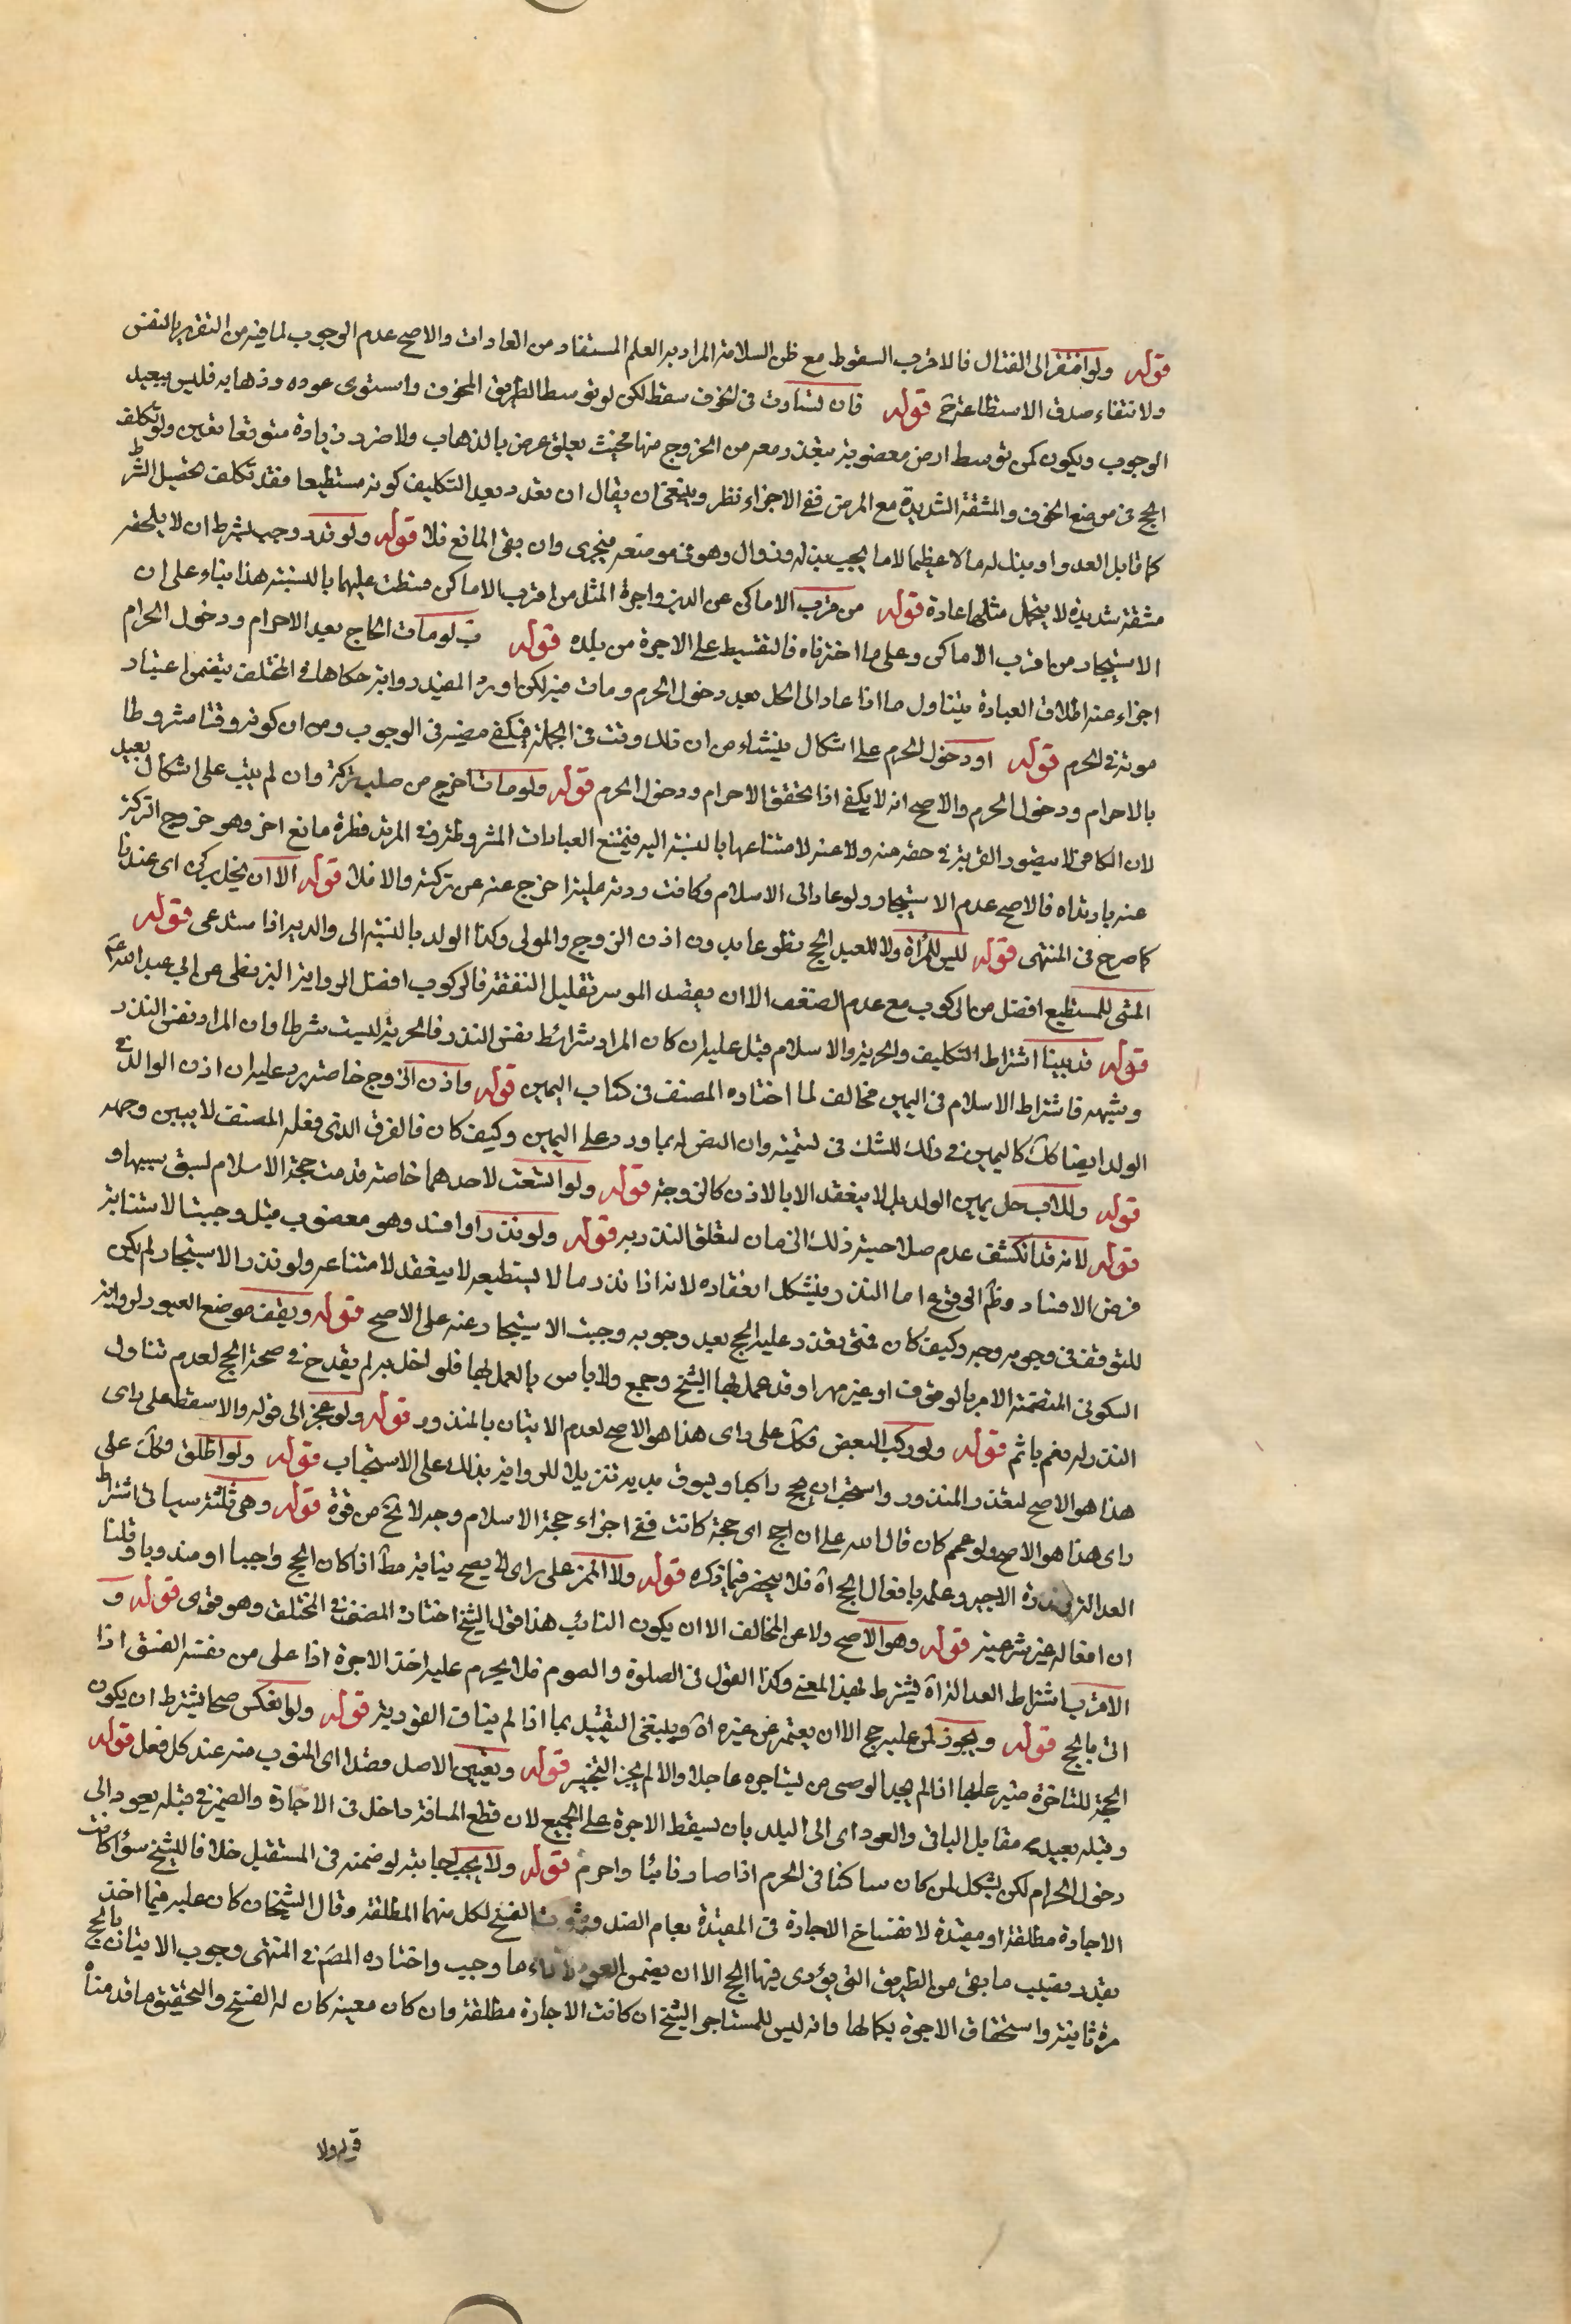 قوله ولو افتقر الى القتال فالاقرب السقوط مع ظن السلامة المراد به العلم المستفاد من العادات والاصح عدم الوجوب لما فيه من التغرير بالنفس
ولانتفاء صدق الاستطاعة ح قوله فان تساوت في الخوف سقط لكن لو توسط الطريق المخوف واستوى عوده وذهابه فليس ببعيد
الوجوب ويكون كمن توسط ارض مغصوبة يتعذر معه من الخروج منها بحيث تعلق غرض بالذهاب ولا ضرر زيادة متوقعا تعين ولو تكلف
الحج في موضع الخوف والمشقة الشديدة مع المرض ففي الاجزاء نظر وينبغي ان يقال ان تعدد بعد التكليف كونه مستطيعا فقد تكلف تحصيل الشرط
كما قابل العدو او بذل له مالا عظيما لا ما يجب بذله وزوال وهو في موضعه فيجزى وان بقى المانع فلا قوله ولو نذر وجب بشرط ان لا يلحقه
مشقة شديدة لا يتحمل مثلها عادة قوله من قرب الاماكن عن الدين واجرة المثل من اقرب الاماكن قسطت عليهما بالنسبة هذا بناء على ان
الاستيجار من اقرب الاماكن وعلى ما اخترناه فالتقسيط على الاجرة من بلده قوله ب لو مات الحاج بعد الاحرام ودخول الحرام
اجزاء عنه اطلاق العبادة يتناول ما اذا عاد الى الحل بعد دخول الحرم ومات فيه لكن اورد المفيد رواية حكاها في المختلف يتضمن اعتبار
موته في الحرم قوله او دخول الحرم على اشكال ينشاء من ان ذلك وقت في الجملة فيكفي مضيه في الوجوب ومن ان كونه وقتا مشروطا
بالاحرام ودخول الحرم والاصح انه لا يكفي اذا تحقق الاحرام ودخول الحرم قوله ولو مات اخرج من صلب تركته وان لم يتب على اشكال بعيد
لان الكافر لا يتصور القربة في حقه منه ولا عنه لامتناعها بالنسبة اليه فيمتنع العبادات المشروطة وفي المرتد فطرة مانع اخر وهو خروج التركة
عنه بارتداه فالاصح عدم الاستيجار ولو عاد الى الاسلام وكانت ردته ملية اخرج عنه من تركته والا فلا قوله الا ان يخل بركن اى عندنا
كما صرح في المنتهى قوله ليس للمرأة ولا للعبد الحج تطوعا بدون اذن الزوج والمولى وكذا الولد بالنسبة الى والديه اذا ستدعى قوله
المشى للمستطيع افضل من الركوب مع عدم الضعف الا ان يقصد الموسر تقليل النفقة فالركوب افضل الرواية البزنطى عن ابي عبد الله ع
قوله قد بينا اشتراط التكليف والحرية والاسلام قبل عليه ان كان المراد شرائط نفس النذر فالحرية ليست شرطا وان المراد نفس النذر
وشبهه فاشتراط الاسلام في اليمين مخالف لما اختاره المصنف في كتاب اليمين قوله واذن الزوج خاصة يرد عليه ان اذن الوالد في
الولد ايضا كك كاليمين في ذلك للشك في تسميته وان النص له بما ورد على اليمين وكيف كان فالفرق الذى فعله المصنف لا يبين وجهه
قوله وللاب حل يمين الولد بل لا ينعقد الا بالاذن كالزوجة قوله ولو اتسعت لاحدهما خاصة قدمت حجة الاسلام لسبق سببها و
قوله لانه قد انكشف عدم صلاحيته ذلك الزمان لتعلق النذر به قوله ولو نذر او افسد وهو معضوب قبل وجبت الاستنابة
فرض الافساد وظم الوقوع اما النذر فيشكل انعقاده لانه اذا نذر ما لا يستطيعه لا ينعقد لامتناعه ولو نذر الاستيجار لم يكن
للتوقف في وجوبه وجه وكيف كان فمتى تعذر عليه الحج بعد وجوبه وجبت الاستيجار عنه على الاصح قوله ويقف موضع العبور لرواية
السكوني المتضمنة الامر بالوقوف او غيرمها وقد عمل بها الشيخ وجمع ولا باس بالعمل بها فلو اخل به لم يقدح في صحة الحج لعدم تناول
النذر له نعم ياثم قوله ولو ركب البعض فكك على راى هذا هو الاصح لعدم الاتيان بالمنذور قوله ولو عجز الى قوله والا سقط على راى
هذا هو الاصح لتعذر المنذور واستحب ان يحج راكبا ويسوق بدنة تنزيلا للرواية بذلك على الاستحباب قوله ولو اطلق فكك على
راى هذا هو الاصح ولو عمم كان قال لله على ان احج اى حجة كانت ففي اجزاء حجة الاسلام وجه لا يخ من قوة قوله وهي ثلثة سياتي اشتراط
العدالة قدرة الاجير وعلمه بافعال الحج اه فلا ينحصر فيما ذكره قوله ولا المميز على راى لا يصح نيابته مط اذا كان الحج واجبا او مندوبا وقلنا
ان افعاله غير شرعية قوله وهو الاصح ولا عن المخالف الا ان يكون النائب هذا قول الشيخ اختاره المصنف في المختلف وهو قوى قوله و
الاقرب اشتراط العدالة اه فيشترط لهذا المعنى وكذا القول في الصلوة والصوم فلا يحرم عليه اخذ الاجرة اذا على من نفسه الفسق اذا
اتى بالحج قوله ويجوز لمن عليه حج الا ان يعتمر عن غيره اه وينبغي التقييد بما اذا لم يناف الفورية قوله ولو انعكس صحا يشترط ان يكون
الحجة المتاخرة متير عليها اذا لم يجد الوصى من يستاجره عاجلا والا لم يجز التخيير قوله وبتعيين الاصل فصلا اى المنوب منه عند كل فعل قوله
وقبله بعيد مقابل الباقي والعود اى الى البلد بان يسقط الاجرة على الجميع لان قطع المسافة داخل في الاجارة والضمير في قبله يعود الى
دخول الحرام لكن يشكل لمن كان ساكنا في الحرم اذا صار نائبا واحرم قوله ولا يجب اجابته لو ضمنه في المستقبل خلافا للشيخ سواء كانت
الاجارة مطلقة او مقيدة لانفساخ الاجارة في المقيدة بعام الصد وثبوت الفسخ لكل منهما المطلقة وقال الشيخان كان عليه فيما اخذ
بقدر نصيب ما بقى من الطريق التي يؤدى فيها الحج الا ان يضمن العود لاداء ما وجب واختاره المصنف في المنتهى وجوب الاتيان بالحج
مرة ثانية واستحقاق الاجرة بكمالها وانه ليس للمستاجر الفسخ ان كانت الاجارة مطلقة وان كان معينة كان له الفسخ والتحقيق ما قدمناه
قوله ولا